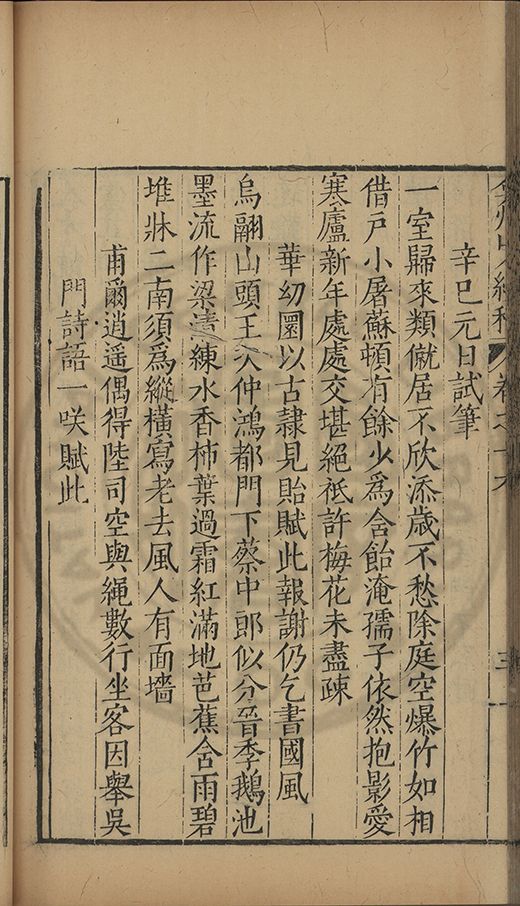 卷之十六
辛巳元日試筆
一室歸來類僦居不欣添歲不愁除庭空爆竹如相
借戶小屠蘇頓有餘少爲含飴淹孺子依然抱影愛
寒廬新年處處交堪絕祇許梅花未盡疎
華幼圜以古隸見貽賦此報謝仍乞書國風
烏翮山頭王次仲鴻都門下蔡中郎似分晉季鵝池
墨流作梁清練水香柿葉過霜紅滿地芭蕉含雨碧
堆牀二南須爲縱橫寫老去風人有面墻
甫爾逍遥偶得陸司空與繩數行坐客因舉吳
門詩語一咲賦此